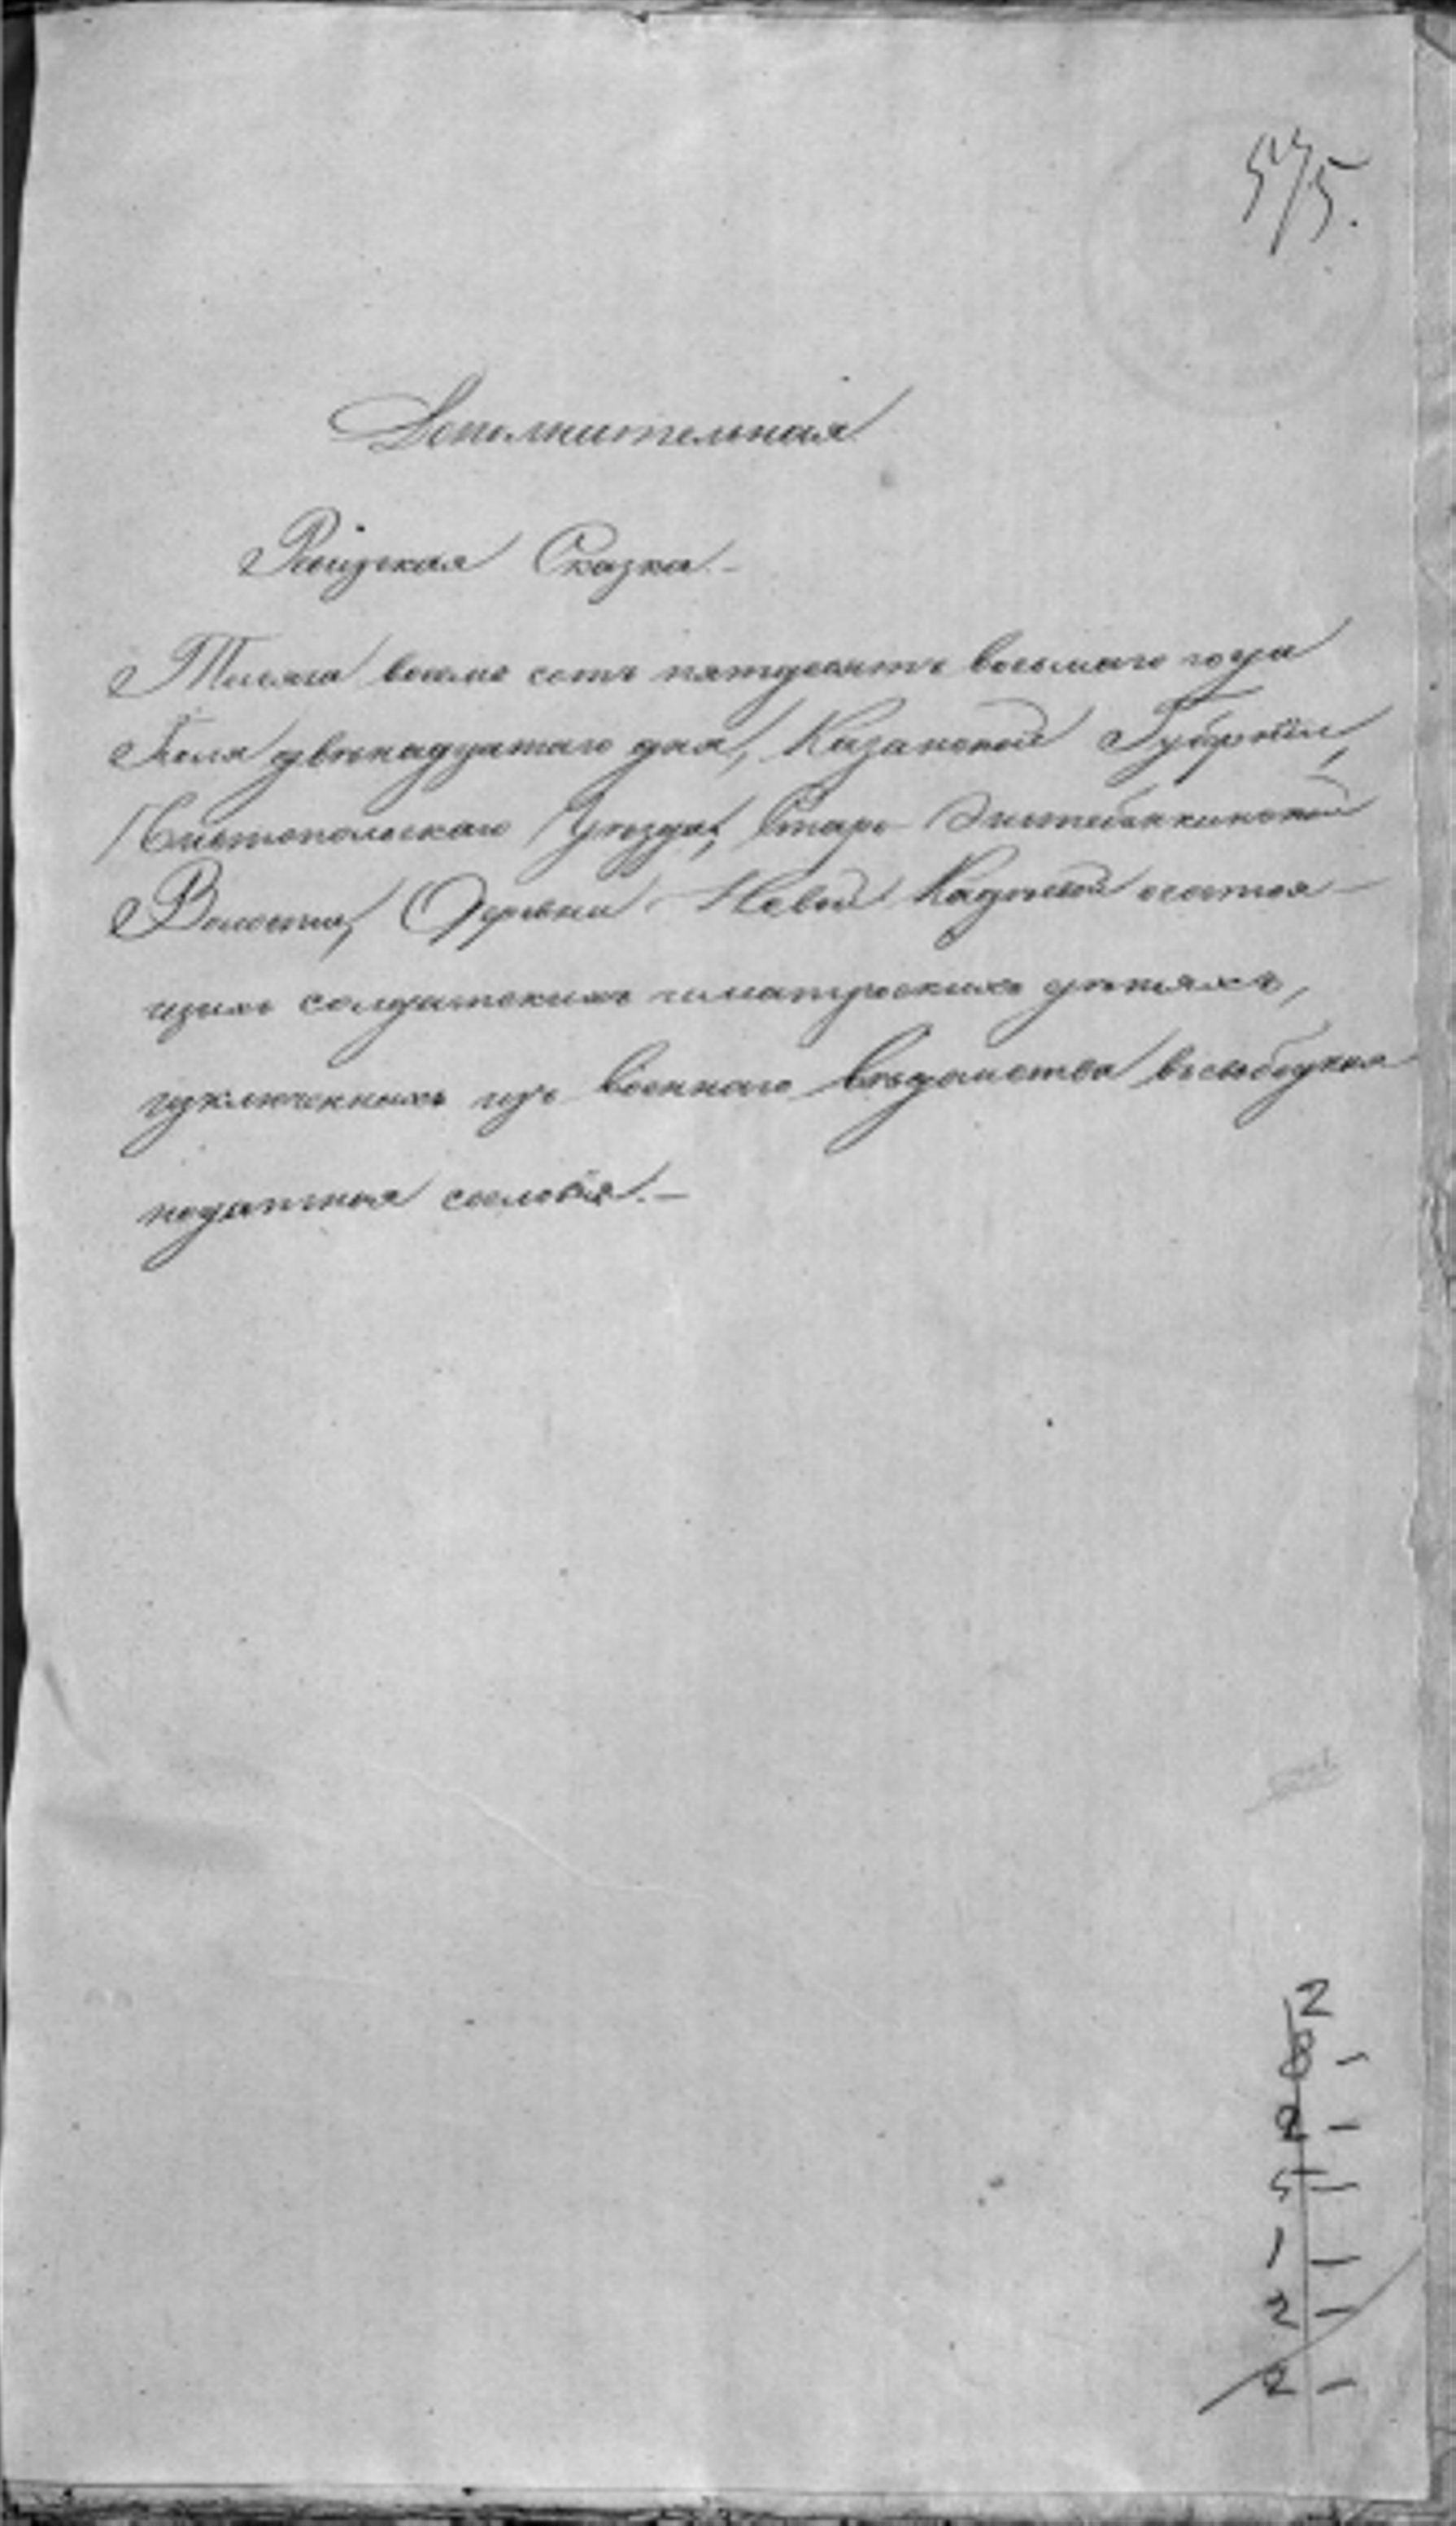 575.
Дополнительная
Ревизская Сказка.-
Тысяча восемь сотъ пятдесятъ восьмаго года
Іюля двенадцатаго дня, Казанской Губерніи,
Чистопольскаго Уезда, Старо-
Волости, Деревни Новой Кадеевой о состоя-
щихъ солдатскихъ и матроскихъ детяхъ,
изключенныхъ изъ военнаго ведомства въ свободныя
податныя сословія.-
2
8 -
2 -
5 -
1 -
2 -
2 -